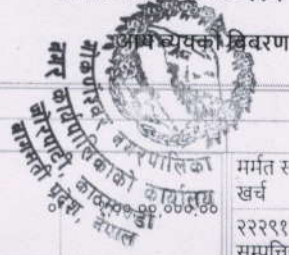 आय व्ययको विबरण
गोकर्णेश्वर नगरपालिका
नगर कार्यपालिकाको कार्यालय
जोरपाटी, काठमाण्डौ
बागमती प्रदेश, नेपाल
मर्मत स
खर्च
२२२९१
सम्पत्ति